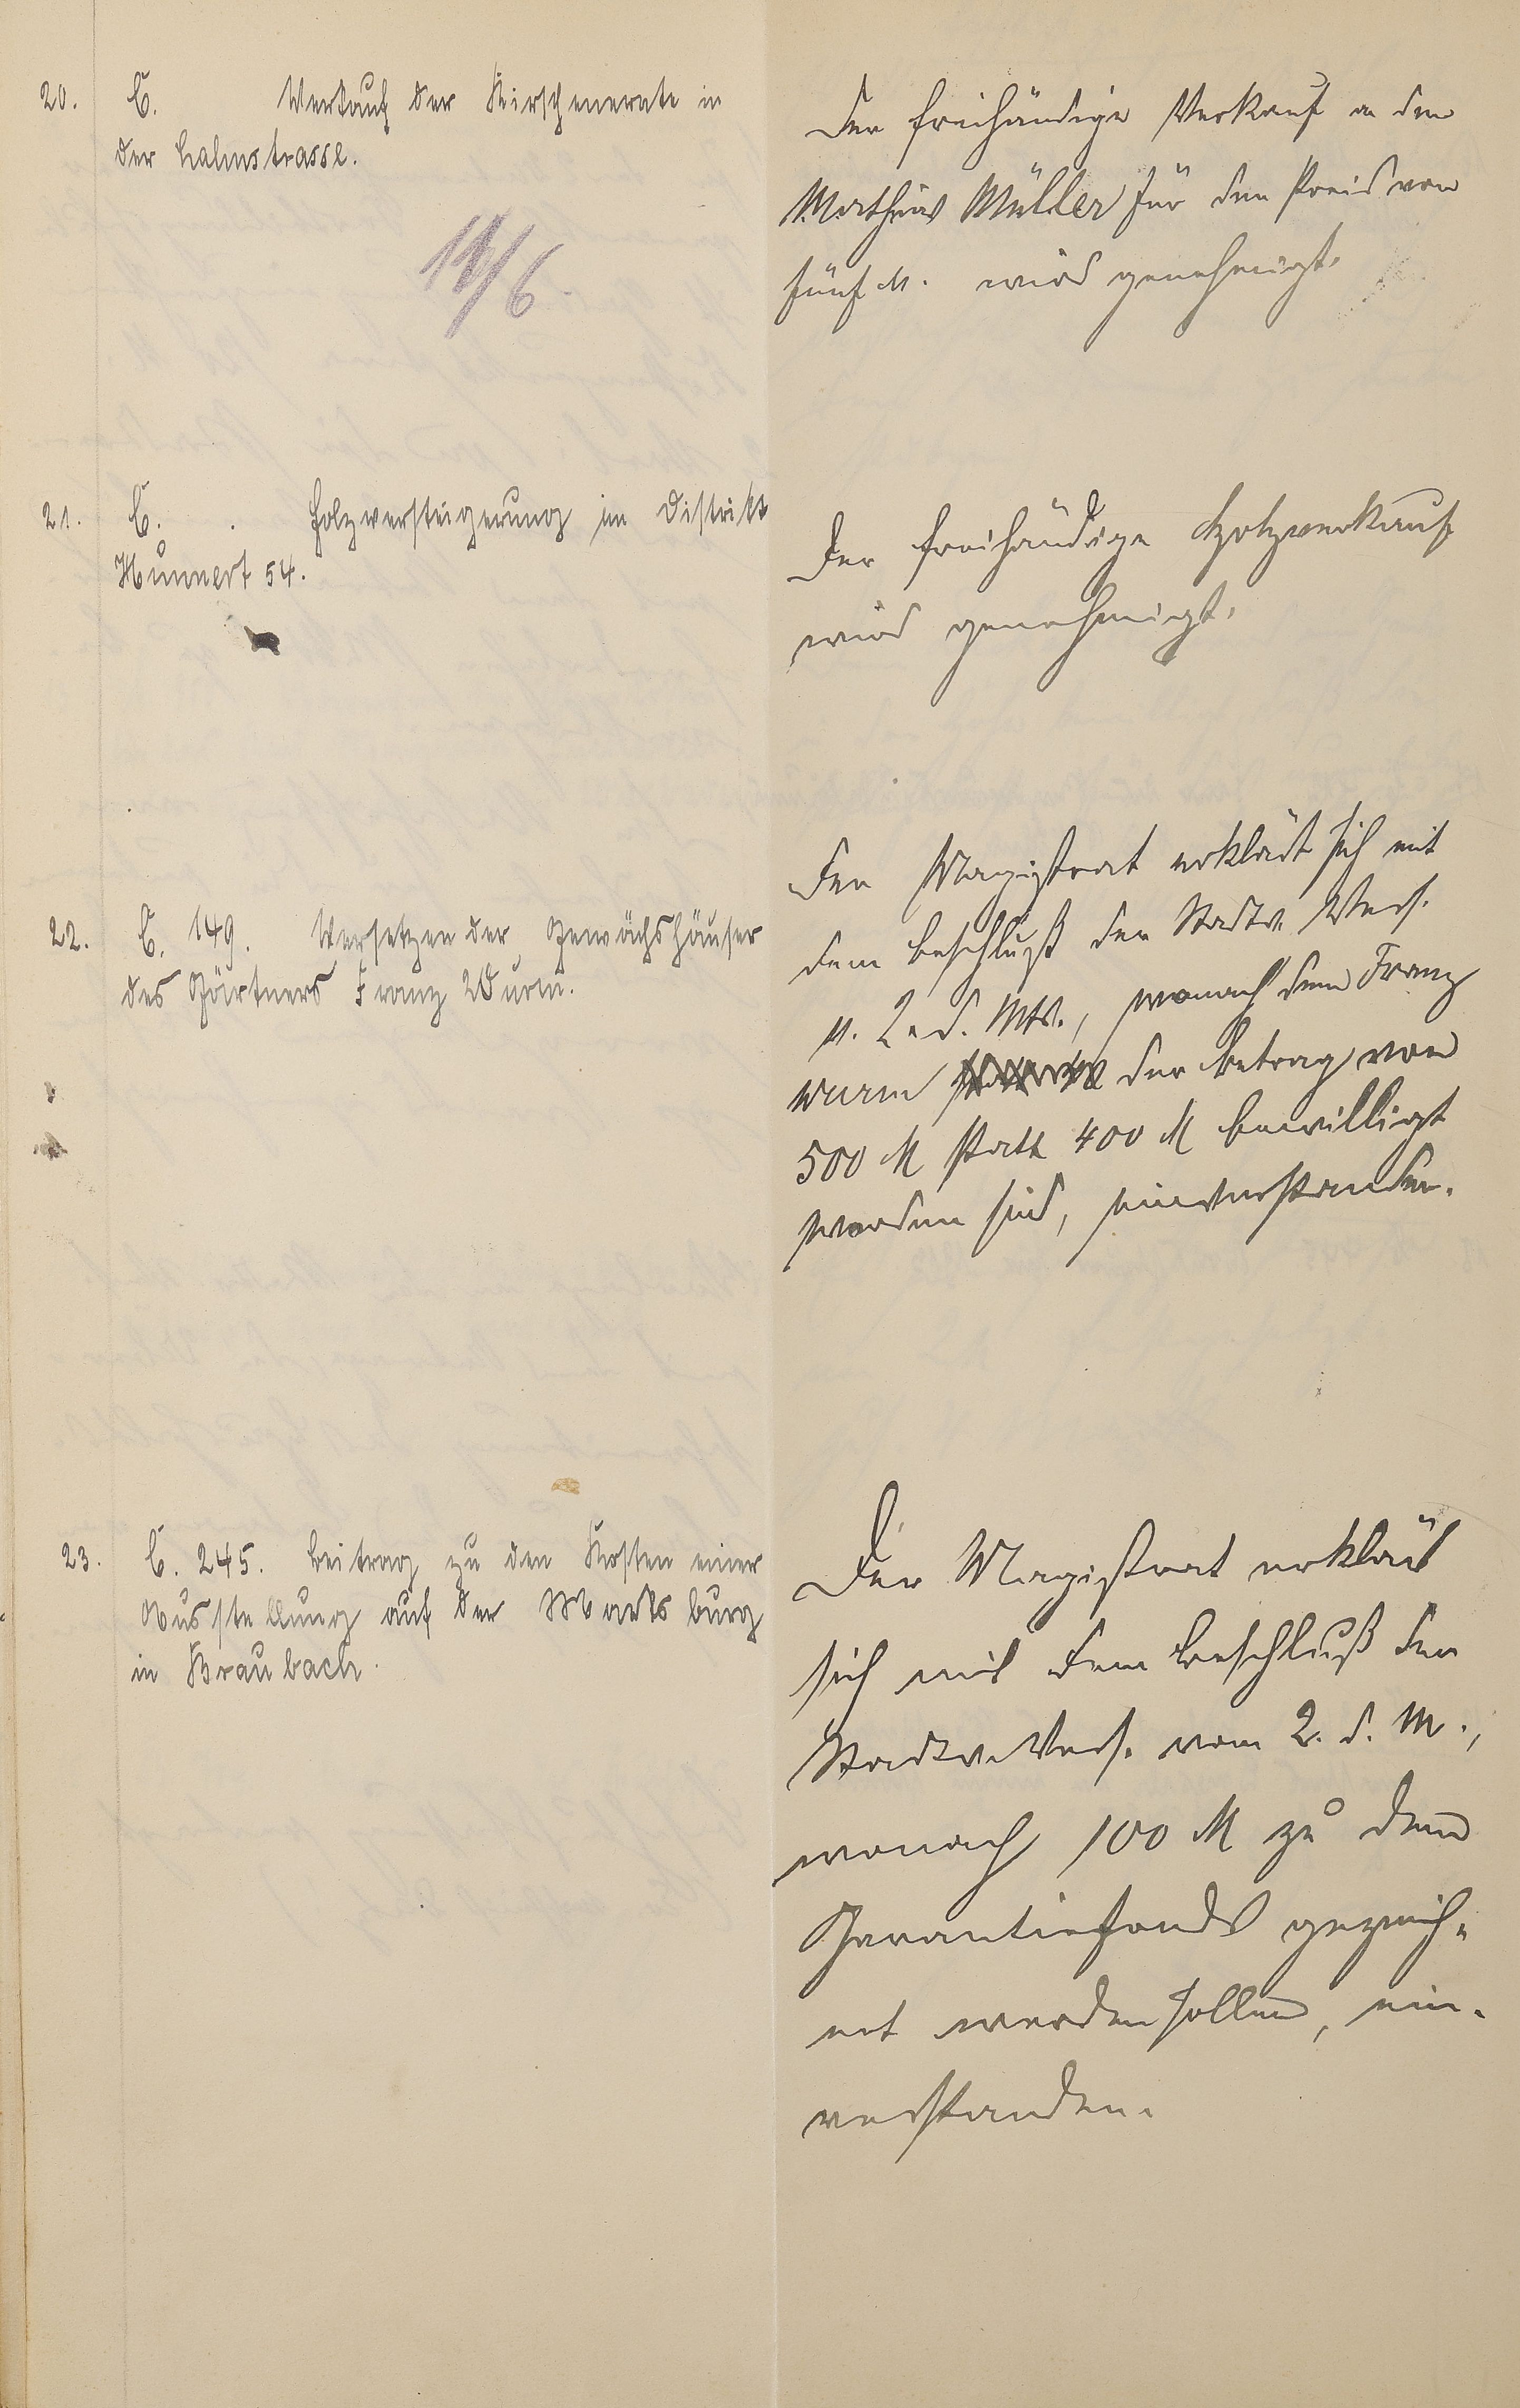 20. C. Verkauf der Kirschenernte in
der Lahnstrasse.
14/6.
Der freihändige Verkauf an den
Mathias Müller für den Preis von
fünf M. wird genehmigt.
21. C. Holzversteigerung im Distrikt
Hünnert 54.
Der freihändige Holzverkauf
wird genehmigt.
22. C. 149. Versetzen der Gewächshäuser
des Gärtners Franz Wurm.
Der Magistrat erklärt sich mit
dem Beschluß der Stadtv. Vers.
v. 2. d. Mts., wonach dem Franz
Wurm der Betrag von
500 M statt 400 M bewilligt
worden sind, einverstanden.
23. C. 245. Beitrag zu den Kosten einer
Ausstellung auf der Marksburg
in Braubach.
Der Magistrat erklärt
sich mit dem Beschluß der
Stadtv. Vers. vom 2. d. M.,
wonach 100 M zu dem
Garantiefonds gezeich-
net werden sollen, ein-
verstanden.